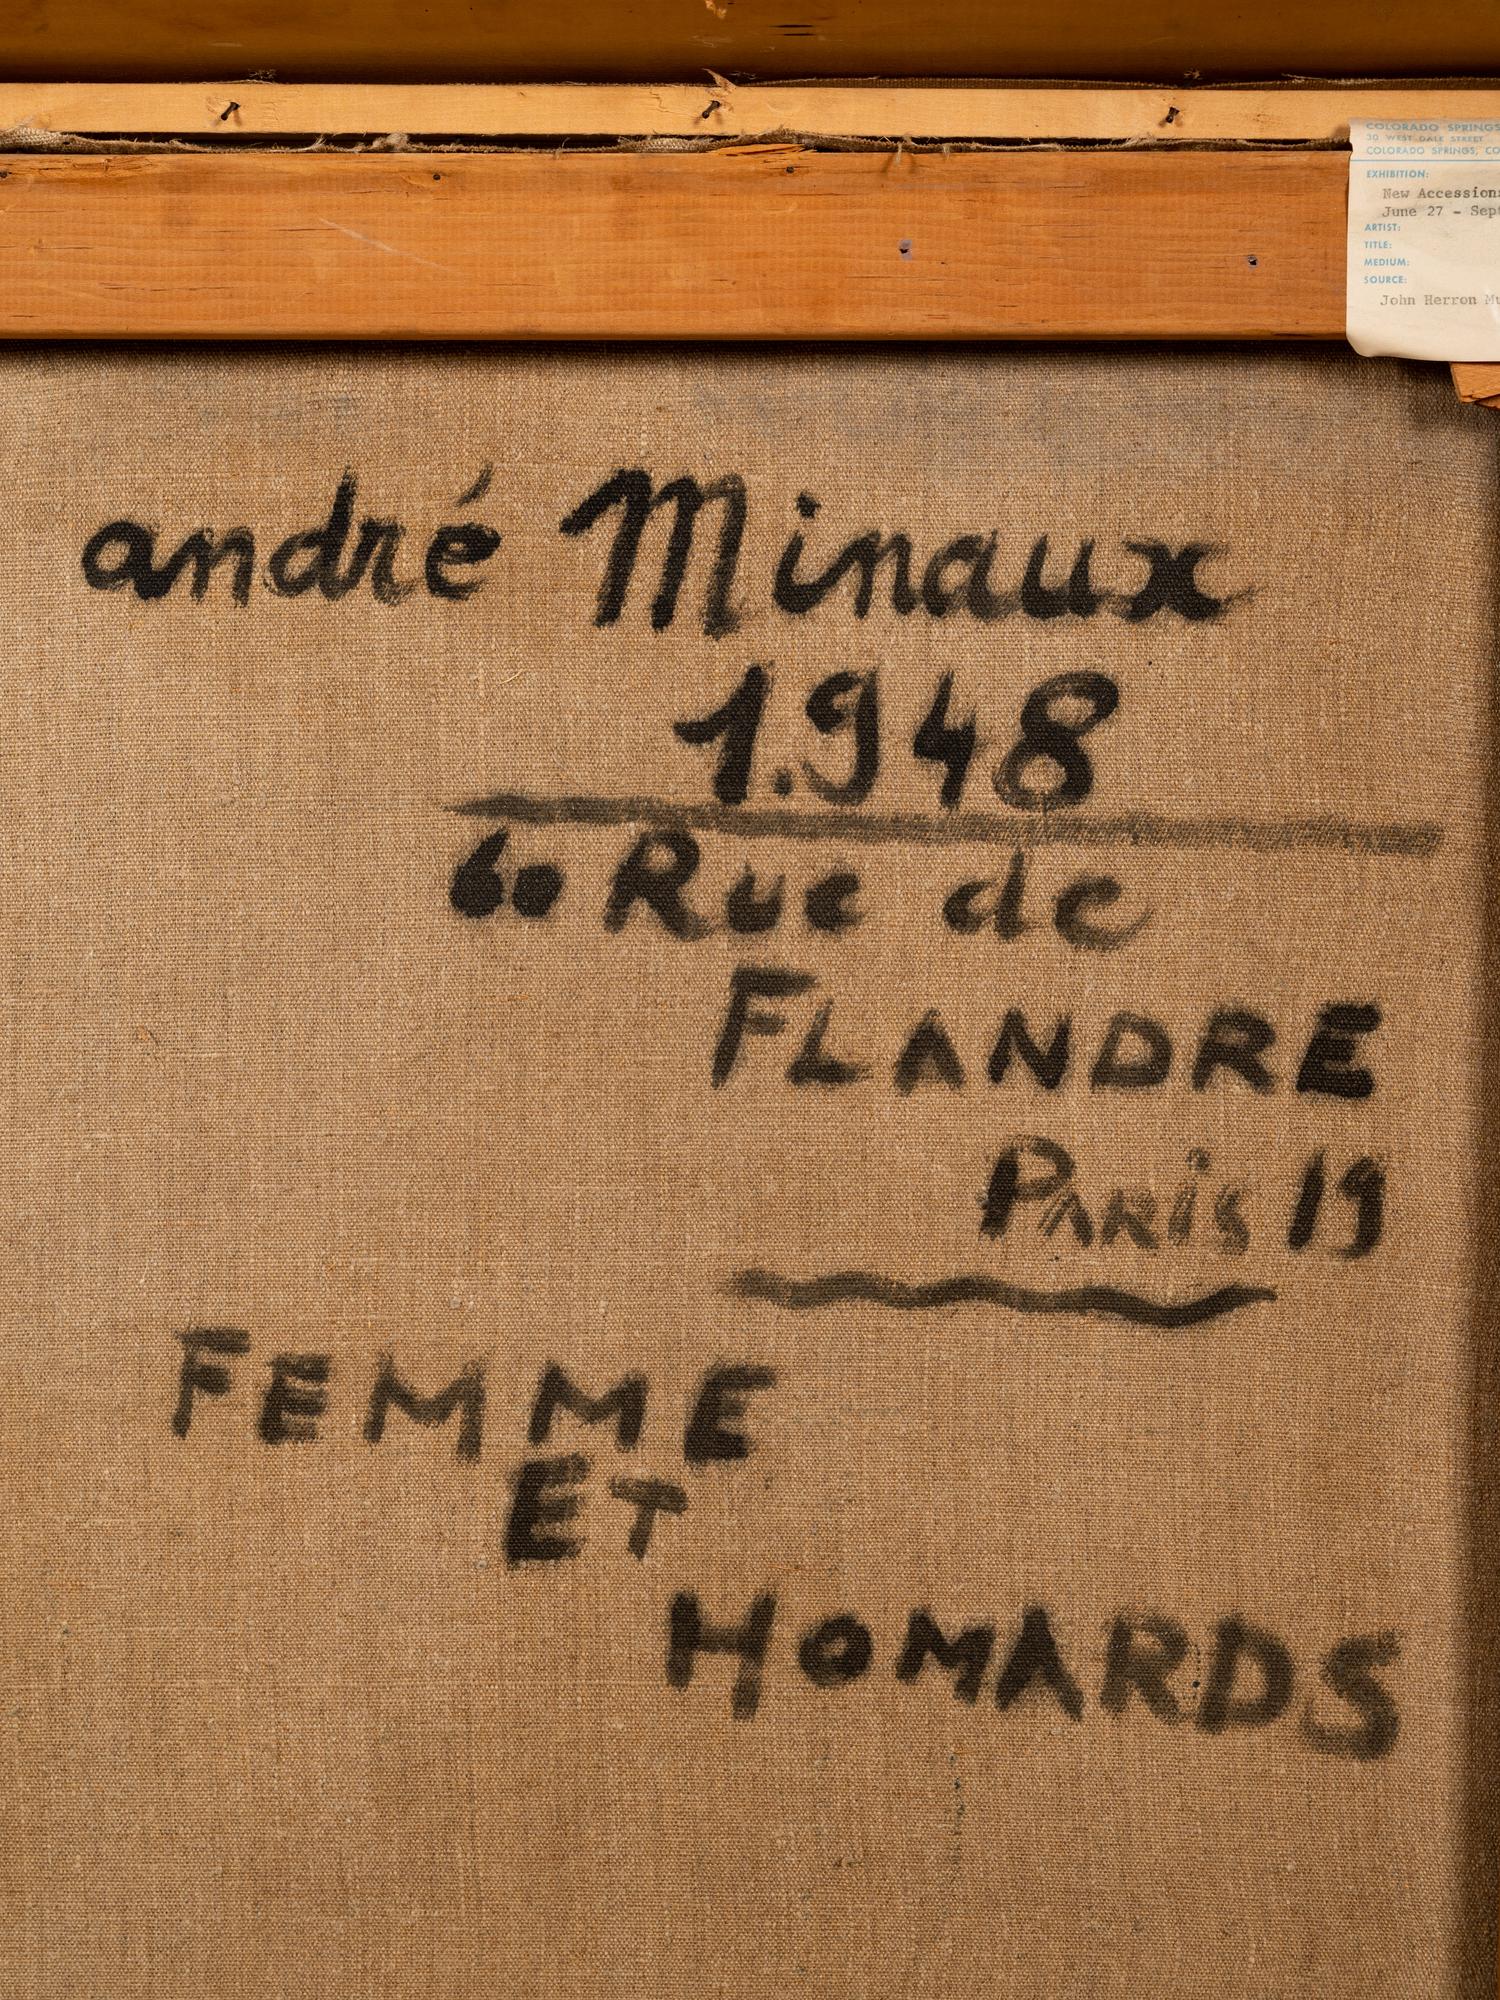 COLORADO SPRINGS
30 WEST DALE STREET
COLORADO SPRINGS, CO
EXHIBITION:
New Accessions
June 27 - Sept
ARTIST:
TITLE:
MEDIUM:
SOURCE:
John Herron Mu
andré Minaux
1.948
60 Rue de
FLANDRE
PARIS 19
FEMME
ET
HOMARDS